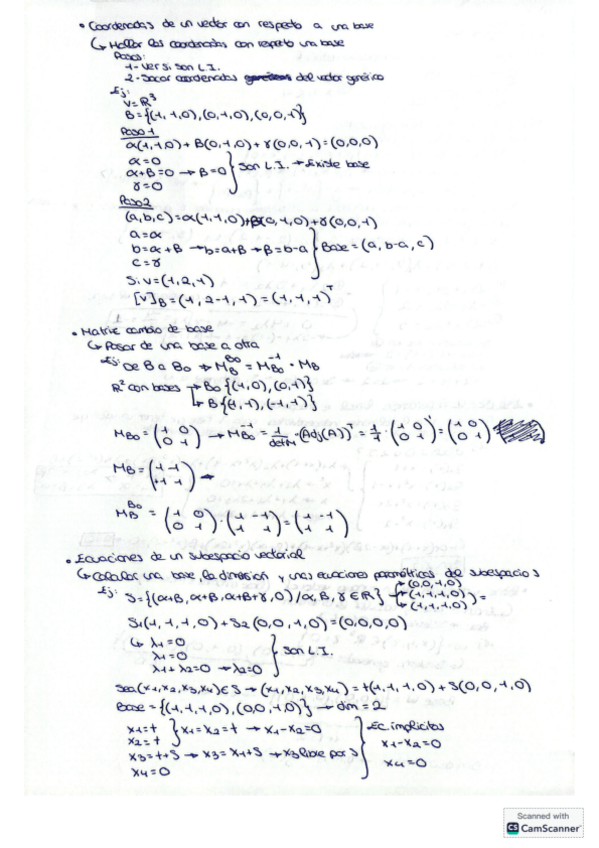 • Coordenadas de un vector con respecto a una base
↳ Hallar las coordenadas con respeto una base
Pasos:
1- Ver si son L.I.
2- Sacar coordenadas del vector genérico
Ej:
V=R³
B={(1,1,0),(0,1,0),(0,0,1)}
Paso 1
α(1,1,0)+B(0,1,0)+γ(0,0,1)=(0,0,0)
α=0
α+B=0 → B=0 } Son L.I. → Existe base
γ=0
Paso 2
(a,b,c)=α(1,1,0)+B(0,1,0)+γ(0,0,1)
a=α
b=α+B → b=a+B → B=b-a } Base=(a, b-a, c)
c=γ
Si v=(1,2,1)
[v]B=(1,2-1,1)=(1,1,1)ᵀ
• Matriz cambio de base
↳ Pasar de una base a otra
Ej: De B a B₀ → M_B^B₀ = M_B₀⁻¹ · M_B
R² con bases → B₀{(1,0),(0,1)}
↳ B{(1,1),(-1,1)}
M_B₀ = (1 0 / 0 1) → M_B₀⁻¹ = 1/detM · (Adj(A))ᵀ = 1/1 · (1 0 / 0 1) = (1 0 / 0 1)
M_B = (1 -1 / 1 1)
M_B^B₀ = (1 0 / 0 1) · (1 -1 / 1 1) = (1 -1 / 1 1)
• Ecuaciones de un subespacio vectorial
↳ Calcular una base, la dimension y unas ecuaciones paramétricas del subespacio S
Ej: S={(α+B, α+B, α+B+γ, 0) / α, B, γ ∈ R} → (0,0,1,0) (1,1,1,0) (1,1,1,0) =
S1(1,1,1,0)+S2(0,0,1,0)=(0,0,0,0)
↳ λ1=0
λ1=0 } Son L.I.
λ1+λ2=0 → λ2=0
Sea (x1,x2,x3,x4)∈S → (x1,x2,x3,x4)=t(1,1,1,0)+S(0,0,1,0)
Base={(1,1,1,0),(0,0,1,0)} → dim=2
x1=t } x1=x2=t → x1-x2=0 } Ec implicitas
x2=t x1-x2=0
x3=t+S → x3=x1+S → x3 libre por S
x4=0 x4=0
Scanned with
CS CamScanner